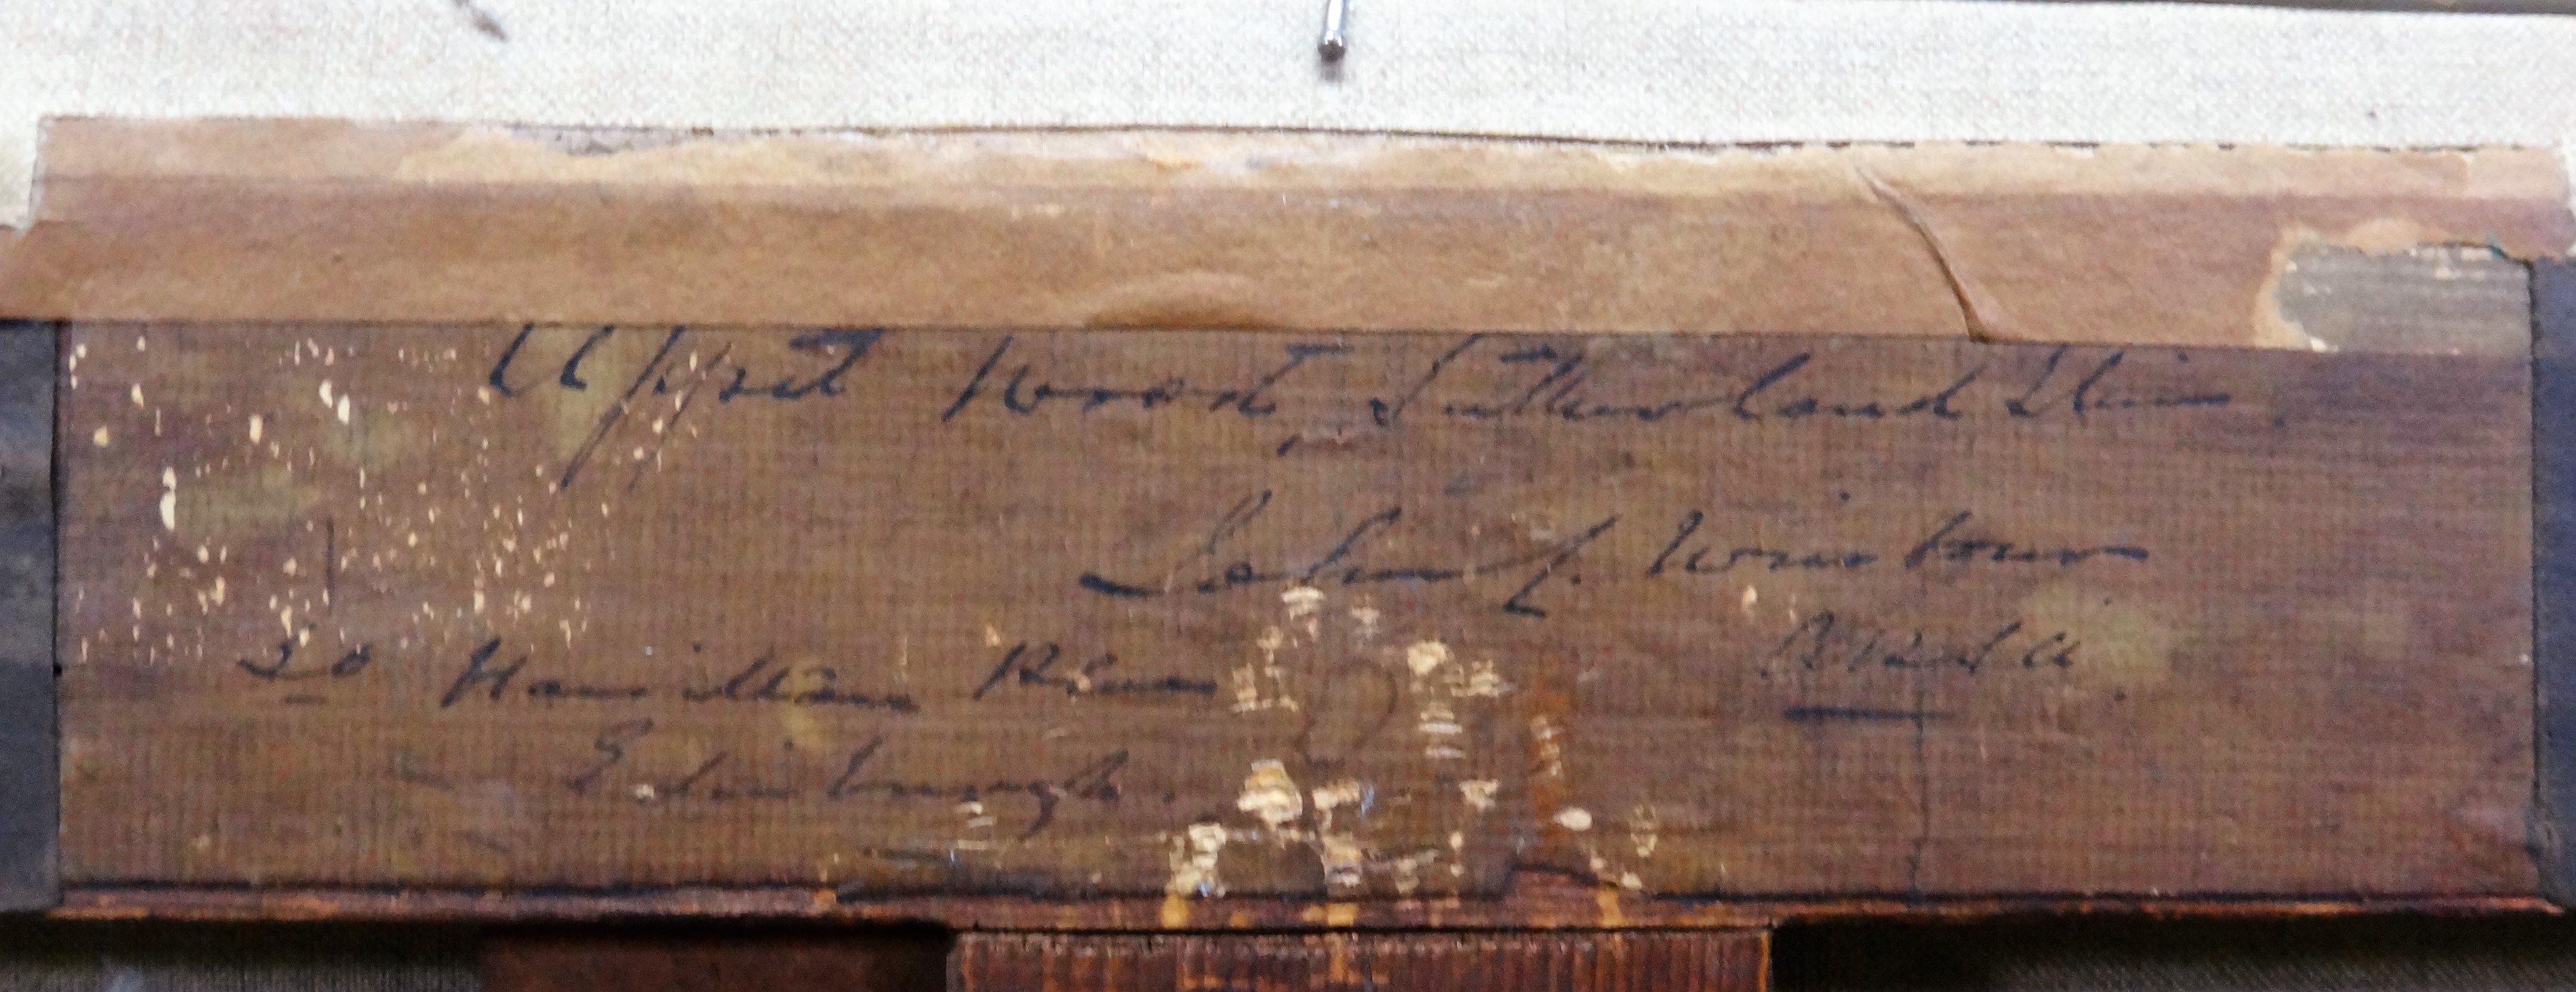 Uppat Wood, Sutherland Shire
John C. Wintour
A R S A.
30 Hamilton Place
Edinburgh.